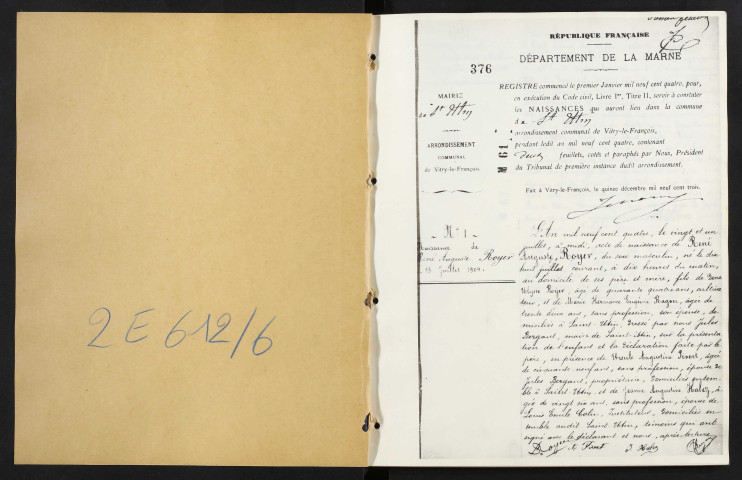 2 E 612/6
376
RÉPUBLIQUE FRANÇAISE
DÉPARTEMENT DE LA MARNE
MAIRIE
de St Utin
ARRONDISSEMENT
COMMUNAL
de Vitry-le-François
REGISTRE commencé le premier Janvier mil neuf cent quatre, pour,
en exécution du Code civil, Livre Ier, Titre II, servir à constater
les NAISSANCES qui auront lieu dans la commune
d e St Utin
arrondissement communal de Vitry-le-François,
pendant ledit an mil neuf cent quatre, contenant
deux feuillets, cotés et paraphés par Nous, Président
du Tribunal de première instance dudit arrondissement.
Fait à Vitry-le-François, le quinze décembre mil neuf cent trois.
N° 61
N° 1
Naissance de
René Auguste Royer
18 juillet 1904.
L'An mil neuf cent quatre, le vingt et un
juillet, à midi, acte de naissance de René
Auguste, Royer, du sexe masculin, né le dix
huit juillet courant, à dix heures du matin,
au domicile de ses père et mère, fils de
Royer, âgé de quarante quatre ans, cultiva
teur, et de Marie Hermance Eugénie Ragon, âgée de
trente deux ans, sans profession, son épouse, do
miciliés à Saint Utin. Dressé par nous Jules
Bergant, maire de Saint-Utin, sur la présenta
tion de l'enfant et la déclaration faite par le
père, en présence de Augustine, âgée
de cinquante neuf ans, sans profession, épouse de
Jules Bergant, propriétaire, domiciliés ensem
ble à Saint Utin et de Jeanne Augustine, â
gée de vingt six ans, sans profession, épouse de
Louis Emile Colin, Instituteur, domiciliés en
semble audit Saint Utin, témoins qui ont
signé avec le déclarant et nous, après lecture